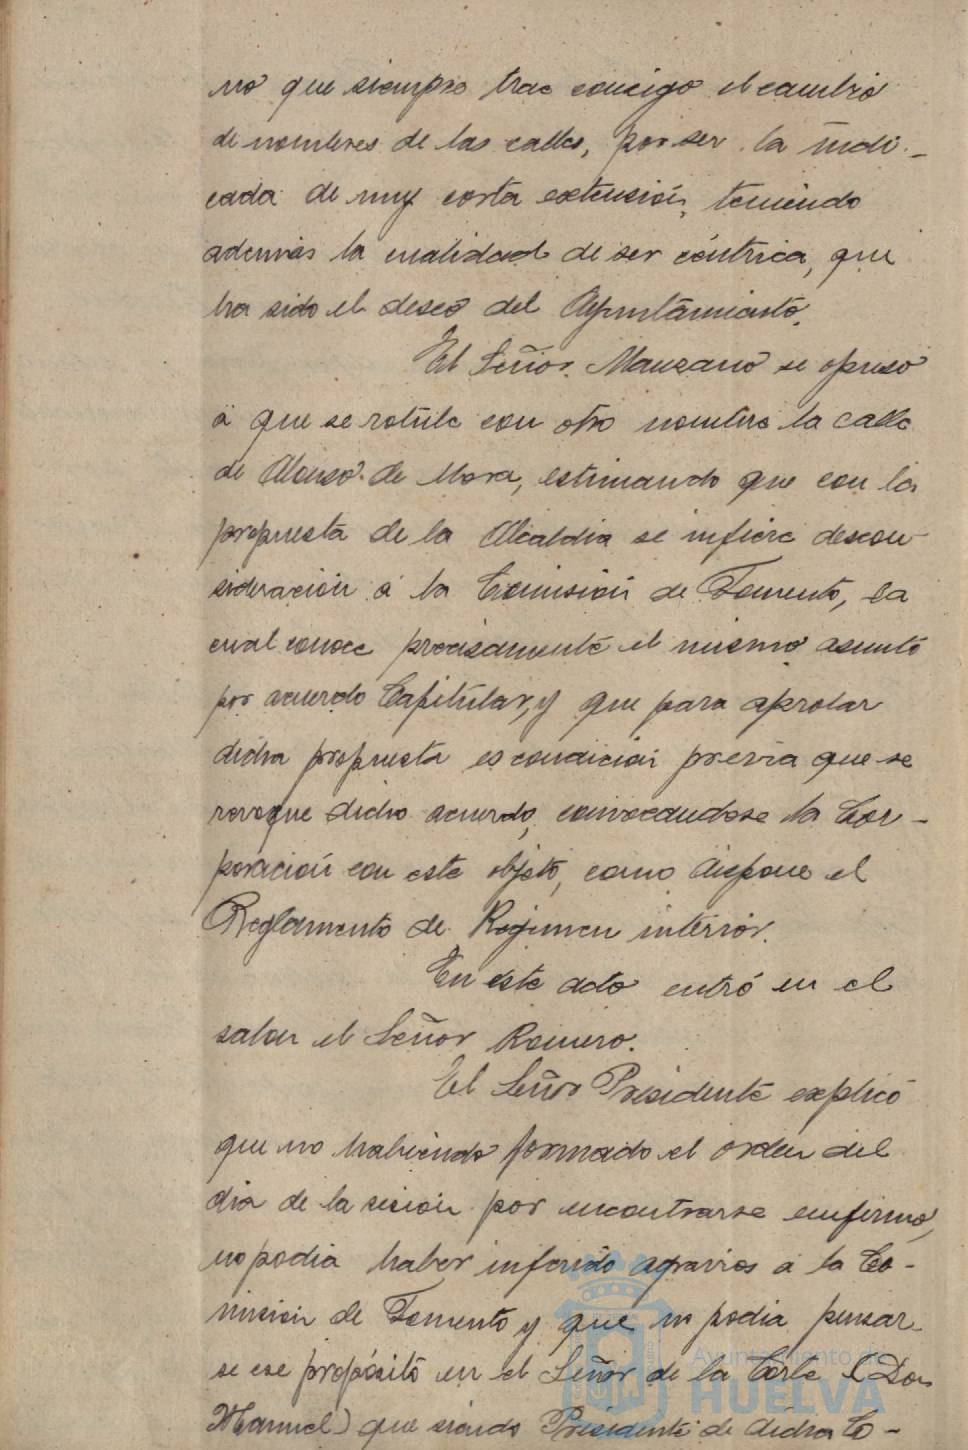 no que siempre trae consigo el cambio
de nombres de las calles, por ser la indi-
cada de muy corta extensión, teniendo
además la cualidad de ser céntrica, que
ha sido el deseo del Ayuntamiento.
El Señor Manzano se opuso
á que se rotule con otro nombre la calle
de Alonso de Mora, estimando que con la
propuesta de la Alcaldia se infiere descon-
sideración á la Comisión de Fomento, la
cual conoce precisamente el mismo asunto
por acuerdo Capitular, y que para aprobar
dicha propuesta es condición previa que se
revoque dicho acuerdo, convocandose la Cor-
poración con este objeto, como dispone el
Reglamento de Regimen interior.
En este acto entró en el
salon el Señor Romero.
El Señor Presidente explicó
que no habiendo formado el orden del
dia de la sesión por encontrarse enfermo,
no podia haber inferido agravios a la Co-
misión de Fomento y que no podia pensar-
se ese propósito en el Señor de la Corte (Don
Manuel) que siendo Presidente de dicha Co-
Ayuntamiento de
HUELVA